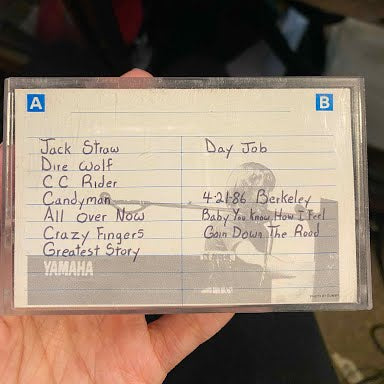 A
B
Jack Straw
Dire Wolf
C C Rider
Candyman
All Over Now
Crazy Fingers
Greatest Story
Day Job
4-21-86 Berkeley
Baby You Know How I Feel
Goin Down The Road
YAMAHA